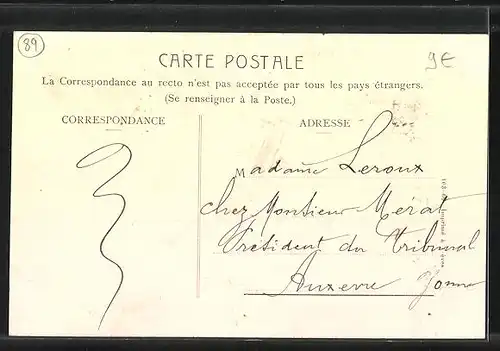 89
9€
CARTE POSTALE
La Correspondance au recto n'est pas acceptée par tous les pays étrangers.
(Se renseigner à la Poste.)
CORRESPONDANCE
ADRESSE
Madame Leroux
chez Monsieur Mérat
Président du Tribunal
Auxerre Yonne